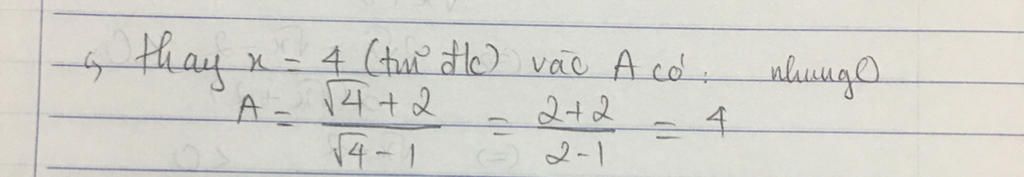 thay x = 4 (tm đk) vào A có: nhung
A = \frac{\sqrt{4}+2}{\sqrt{4}-1} = \frac{2+2}{2-1} = 4